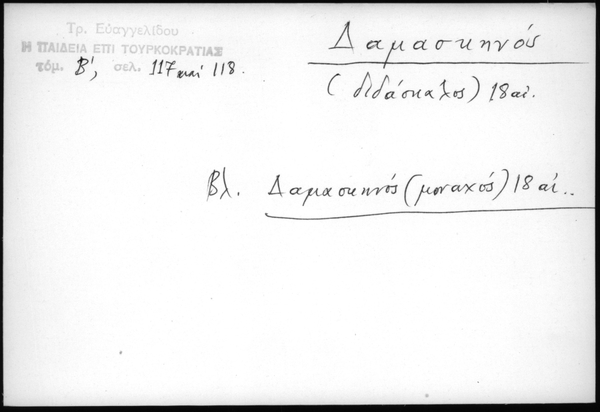 Τρ. Εὐαγγελίδου
Η ΠΑΙΔΕΙΑ ΕΠΙ ΤΟΥΡΚΟΚΡΑΤΙΑΣ
τόμ. Β', σελ. 117 καί 118.
Δαμασκηνός
(διδάσκαλος) 18 αἰ.
Βλ. Δαμασκηνός (μοναχός) 18 αἰ..